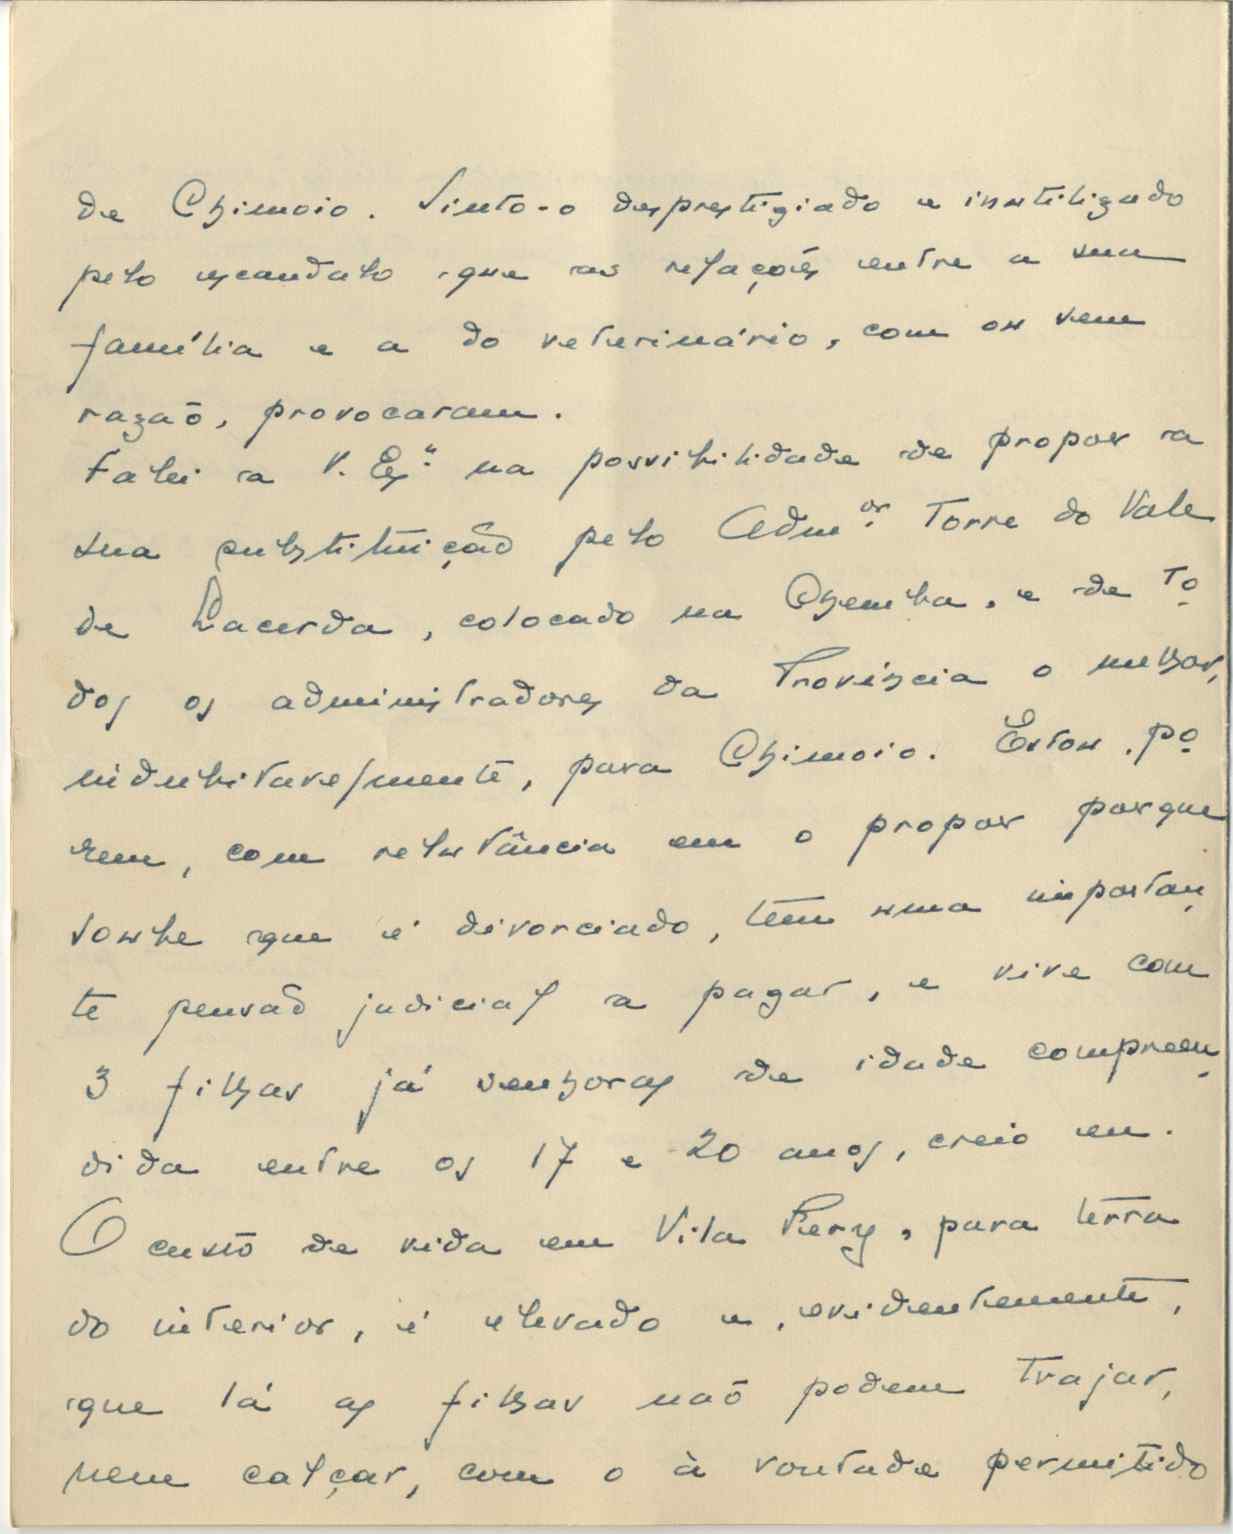 de Chimoio. Sinto-o desprestigiado e inutilizado
pelo escandalo que as relações entre a sua
família e a do veterinário, com ou sem
razaõ, provocaram.
Falei a V. Exª na possibilidade de propor a
sua substituição pelo Admor Torre do Vale
de Lacerda, colocado na Chemba, e de to
dos os administradores da Provincia o melhor,
indubitavelmente, para Chimoio. Estou, po
rem, com relutância em o propor porque
soube que é divorciado, tem uma importan
te pensaõ judicial a pagar, e vive com
3 filhas já senhoras de idade compreen
dida entre os 17 e 20 anos, creio eu.
O custo de vida em Vila Pery, para terra
do interior, é elevado e, evidentemente,
que lá as filhas naõ podem trajar,
nem calçar, com o à vontade permitido